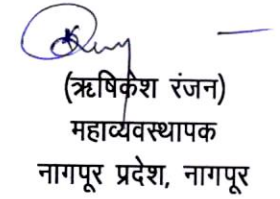 (ऋषिकेश रंजन)
महाव्यवस्थापक
नागपूर प्रदेश, नागपूर